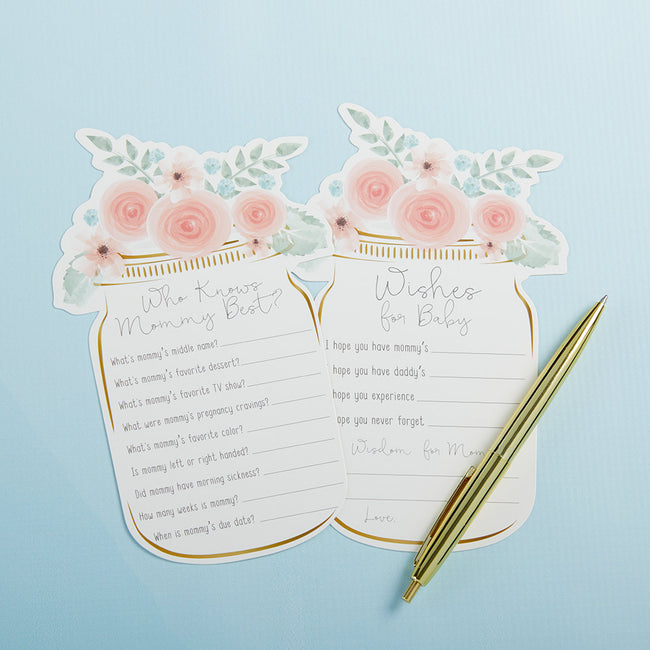 Who Knows
Mommy Best?
What's mommy's middle name?
What's mommy's favorite dessert?
What's mommy's favorite TV show?
What were mommy's pregnancy cravings?
What's mommy's favorite color?
Is mommy left or right handed?
Did mommy have morning sickness?
How many weeks is mommy?
When is mommy's due date?
Wishes
for Baby
I hope you have mommy's
hope you have daddy's
hope you experience
hope you never forget
Wisdom for Mom
Love,